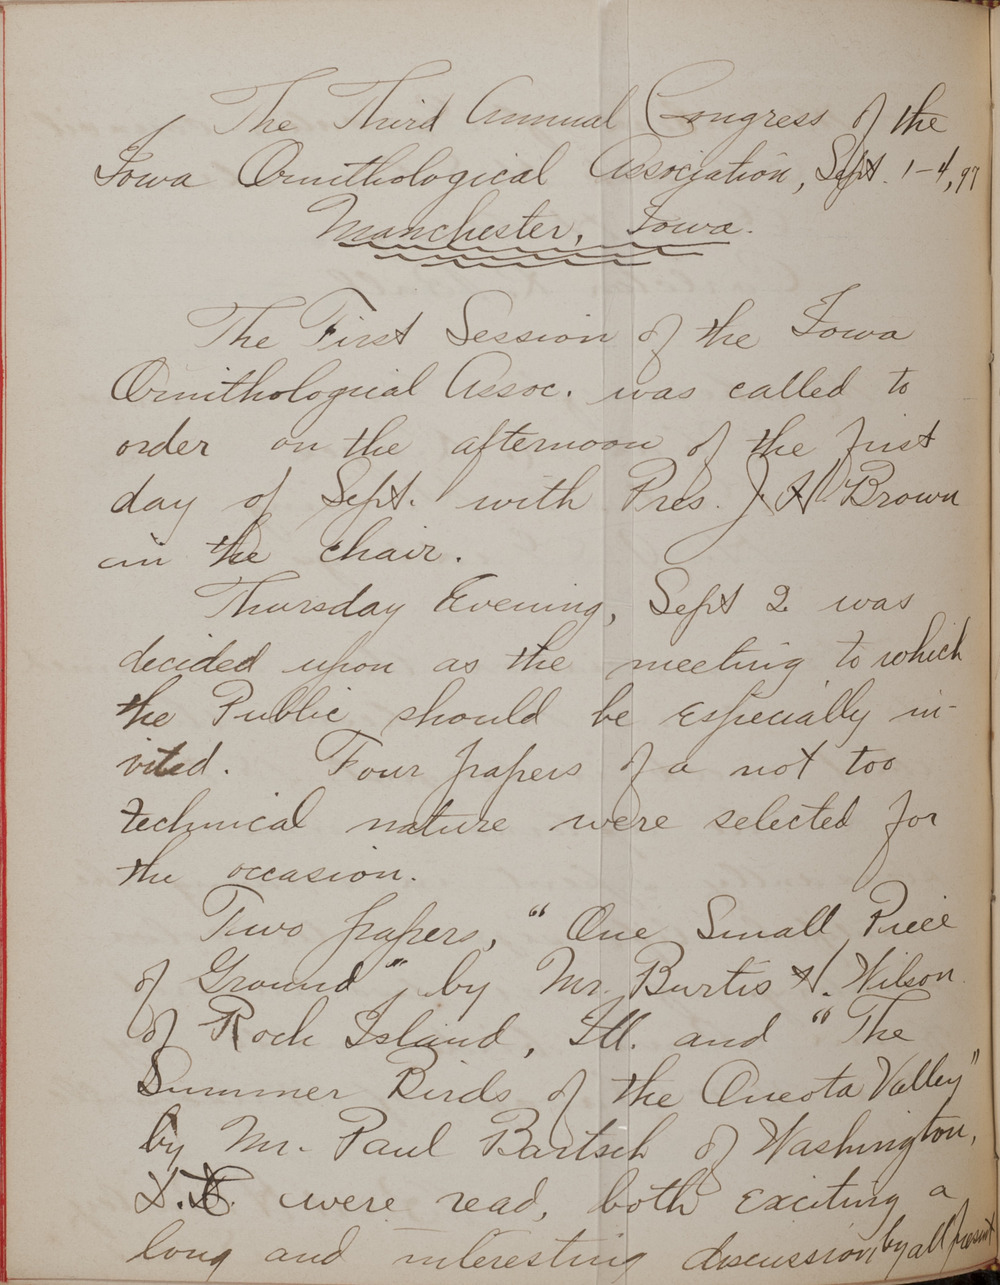 The Third Annual Congress of the
Iowa Ornithological Association, Sept. 1-4, 97
Manchester, Iowa.
The First Session of the Iowa
Ornithological Assoc. was called to
order on the afternoon of the first
day of Sept. with Pres. J. H. Brown
in the chair.
Thursday Evening, Sept 2 was
decided upon as the meeting to which
the Public should be especially in-
vited. Four papers of a not too
technical nature were selected for
the occasion.
Two papers, "One Small Piece
of Ground", by Mr. Burtis H. Wilson
of Rock Island, Ill. and "The
Summer Birds of the Oneota Valley"
by Mr. Paul Bartsch of Washington,
D.C. were read, both exciting a
long and interesting discussion, by all present